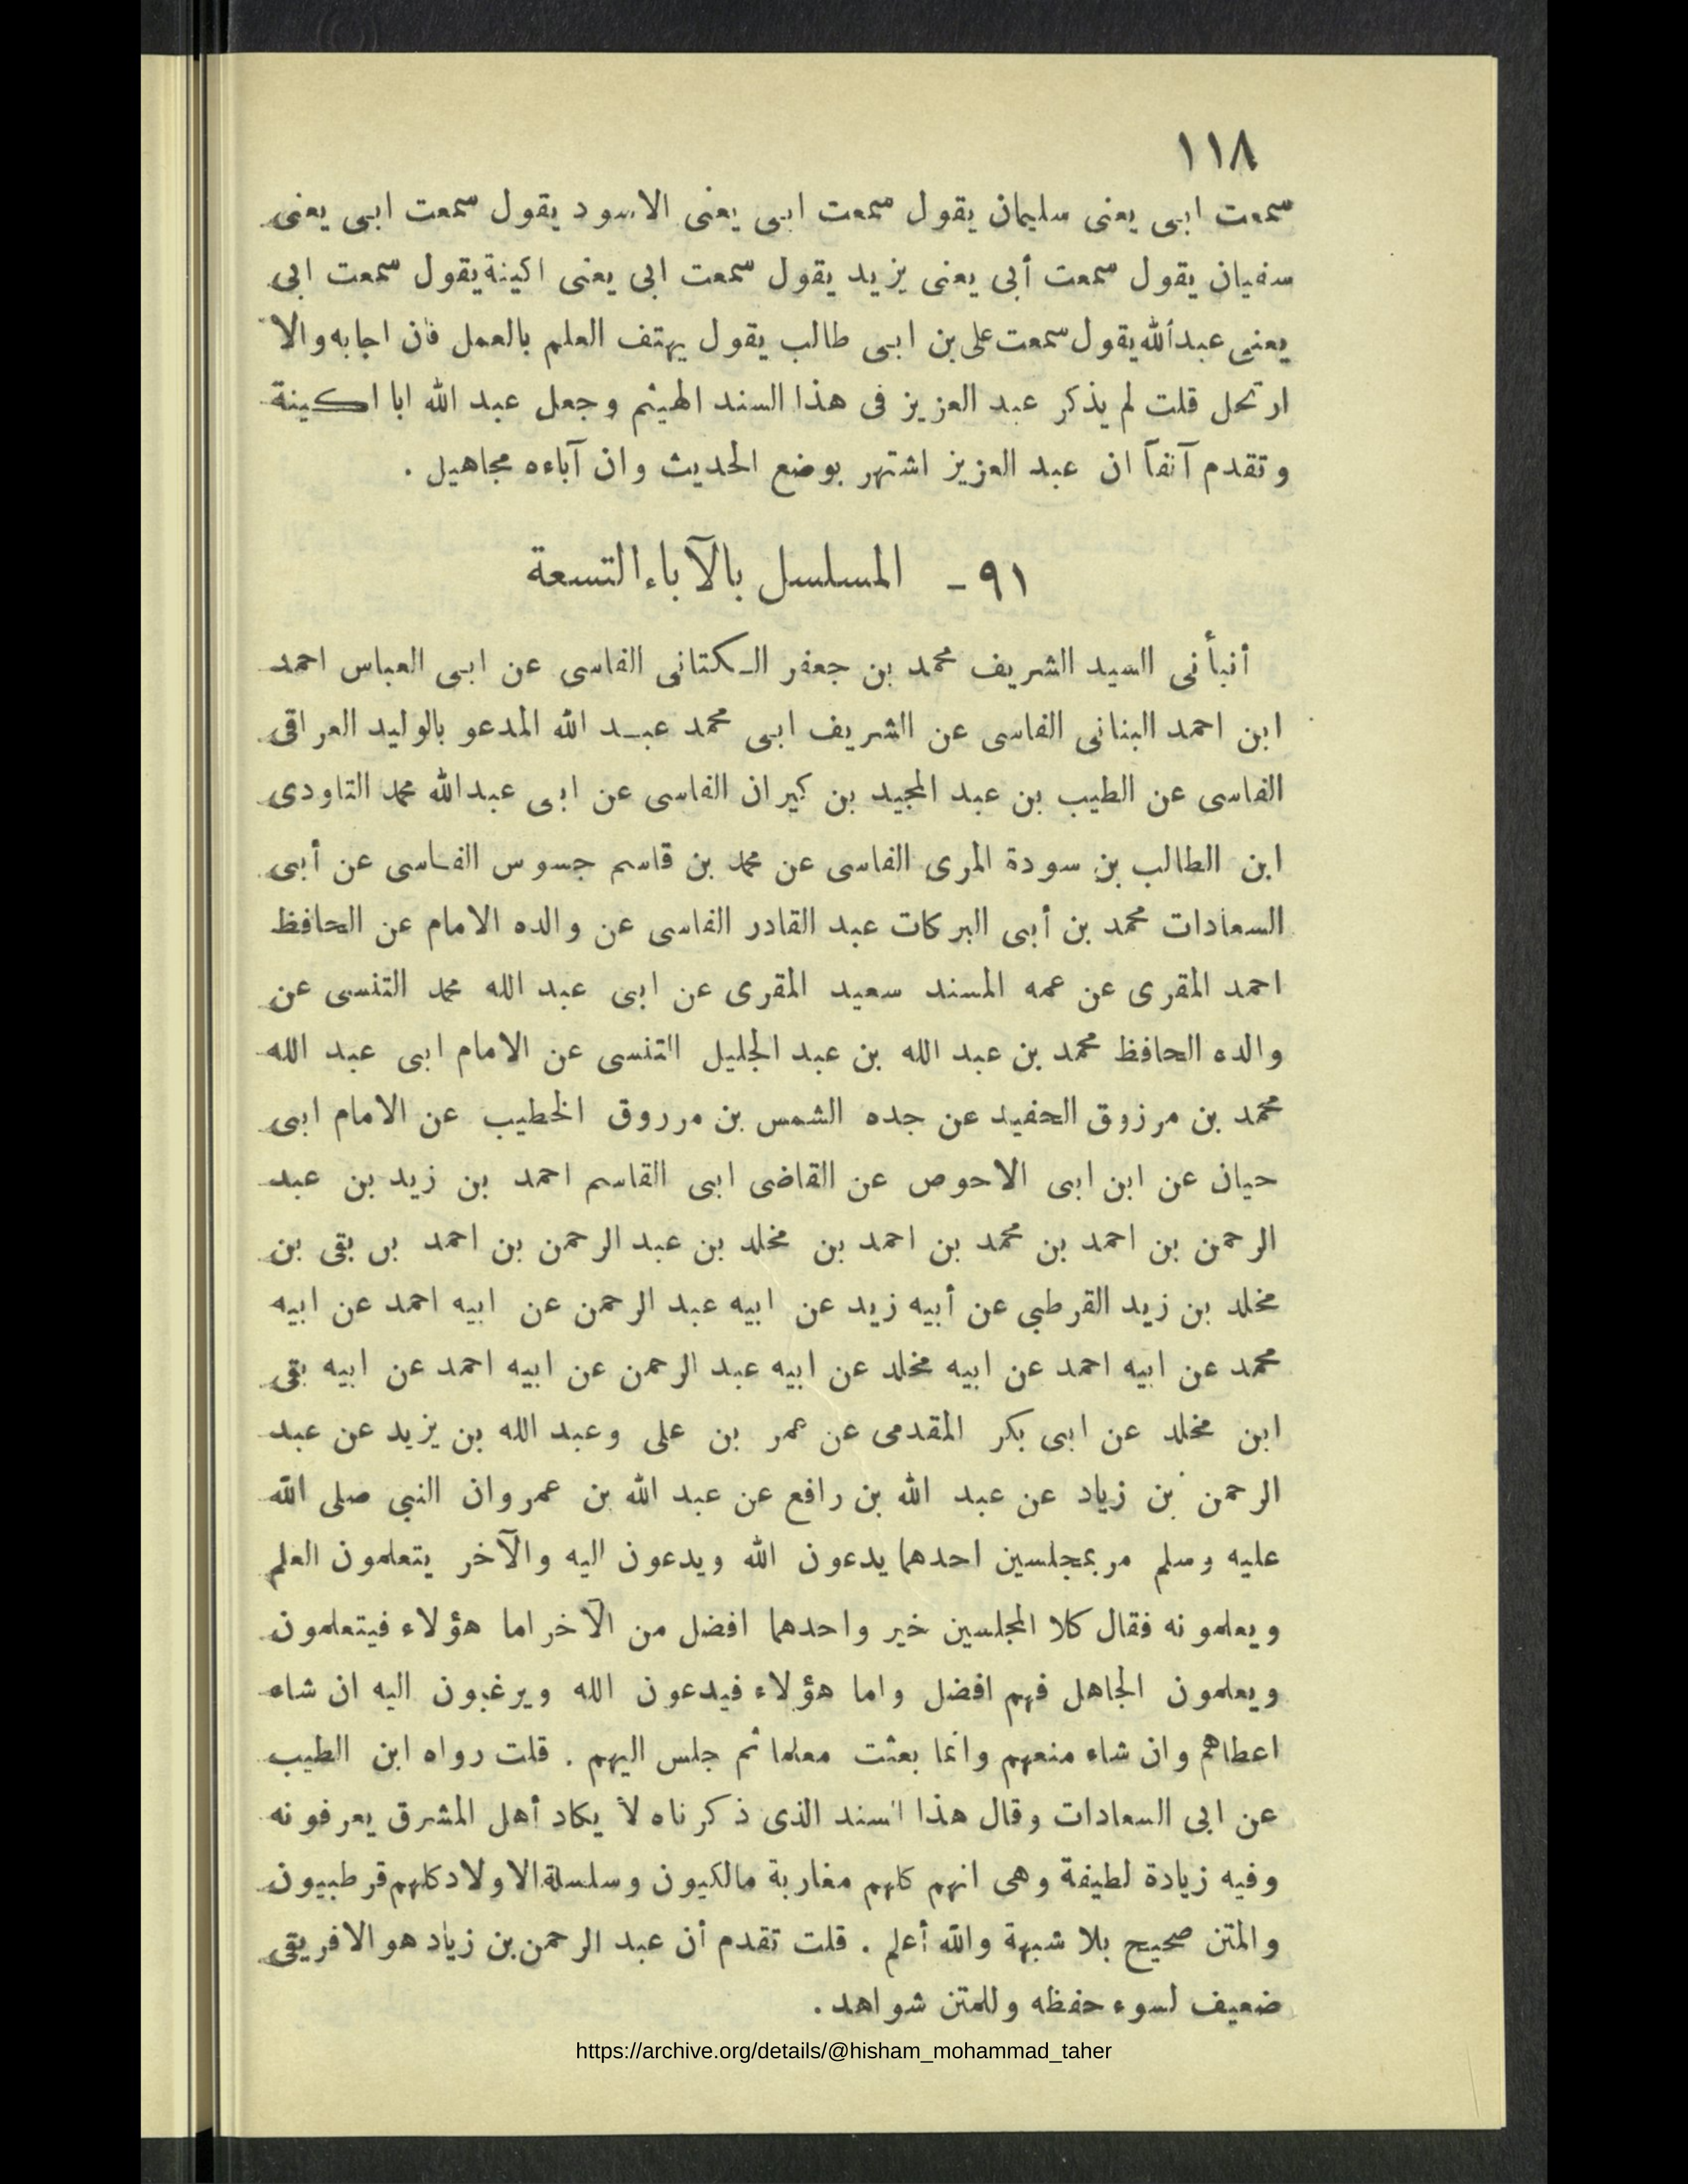 ١١٨
سمعت ابى يعنى سليمان يقول سمعت ابى يعنى الاسود يقول سمعت ابى يعنى
سفيان يقول سمعت أبى يعنى يزيد يقول سمعت ابى يعنى اكينة يقول سمعت ابى
يعنى عبدالله يقول سمعت على بن ابى طالب يقول يهتف العلم بالعمل فان اجابه والا
ارتحل قلت لم يذكر عبد العزيز فى هذا السند الهيثم وجعل عبد الله ابا اكينة
وتقدم آنفاً ان عبد العزيز اشتهر بوضع الحديث وان آباءه مجاهيل .
٩١ - المسلسل بالآباء التسعة
أنبأنى السيد الشريف محمد بن جعفر الكتانى الفاسى عن ابى العباس احمد
ابن احمد البنانى الفاسى عن الشريف ابى محمد عبد الله المدعو بالوليد العراقى
الفاسى عن الطيب بن عبد المجيد بن كيران الفاسى عن ابى عبدالله محمد التاودى
ابن الطالب بن سودة المرى الفاسى عن محمد بن قاسم جسوس الفاسى عن أبى
السعادات محمد بن أبى البركات عبد القادر الفاسى عن والده الامام عن الحافظ
احمد المقرى عن عمه المسند سعيد المقرى عن ابى عبد الله محمد التنسى عن
والده الحافظ محمد بن عبد الله بن عبد الجليل التنسى عن الامام ابى عبد الله
محمد بن مرزوق الحفيد عن جده الشمس بن مرروق الخطيب عن الامام ابى
حيان عن ابن ابى الاحوص عن القاضى ابى القاسم احمد بن زيد بن عبد
الرحمن بن احمد بن محمد بن احمد بن مخلد بن عبد الرحمن بن احمد بن بقى بن
مخلد بن زيد القرطبي عن أبيه زيد عن ابيه عبد الرحمن عن ابيه احمد عن ابيه
محمد عن ابيه احمد عن ابيه مخلد عن ابيه عبد الرحمن عن ابيه احمد عن ابيه بقى
ابن مخلد عن ابى بكر المقدمى عن عمر بن على وعبد الله بن يزيد عن عبد
الرحمن بن زياد عن عبد الله بن رافع عن عبد الله بن عمروان النبي صلى الله
عليه وسلم مر بمجلسين احدهما يدعون الله ويدعون اليه والآخر يتعلمون العلم
ويعلمونه فقال كلا المجلسين خير واحدهما افضل من الآخر اما هؤلاء فيتعلمون
ويعلمون الجاهل فهم افضل واما هؤلاء فيدعون الله ويرغبون اليه ان شاء
اعطاهم وان شاء منعهم وانما بعثت معلما ثم جلس اليهم . قلت رواه ابن الطيب
عن ابى السعادات وقال هذا السند الذى ذكرناه لا يكاد أهل المشرق يعرفونه
وفيه زيادة لطيفة وهى انهم كلهم مغاربة مالكيون وسلسلة الاولاد كلهم قرطبيون
والمتن صحيح بلا شبهة والله أعلم . قلت تقدم أن عبد الرحمن بن زياد هو الافريقى
ضعيف لسوء حفظه وللمتن شواهد .
https://archive.org/details/@hisham_mohammad_taher